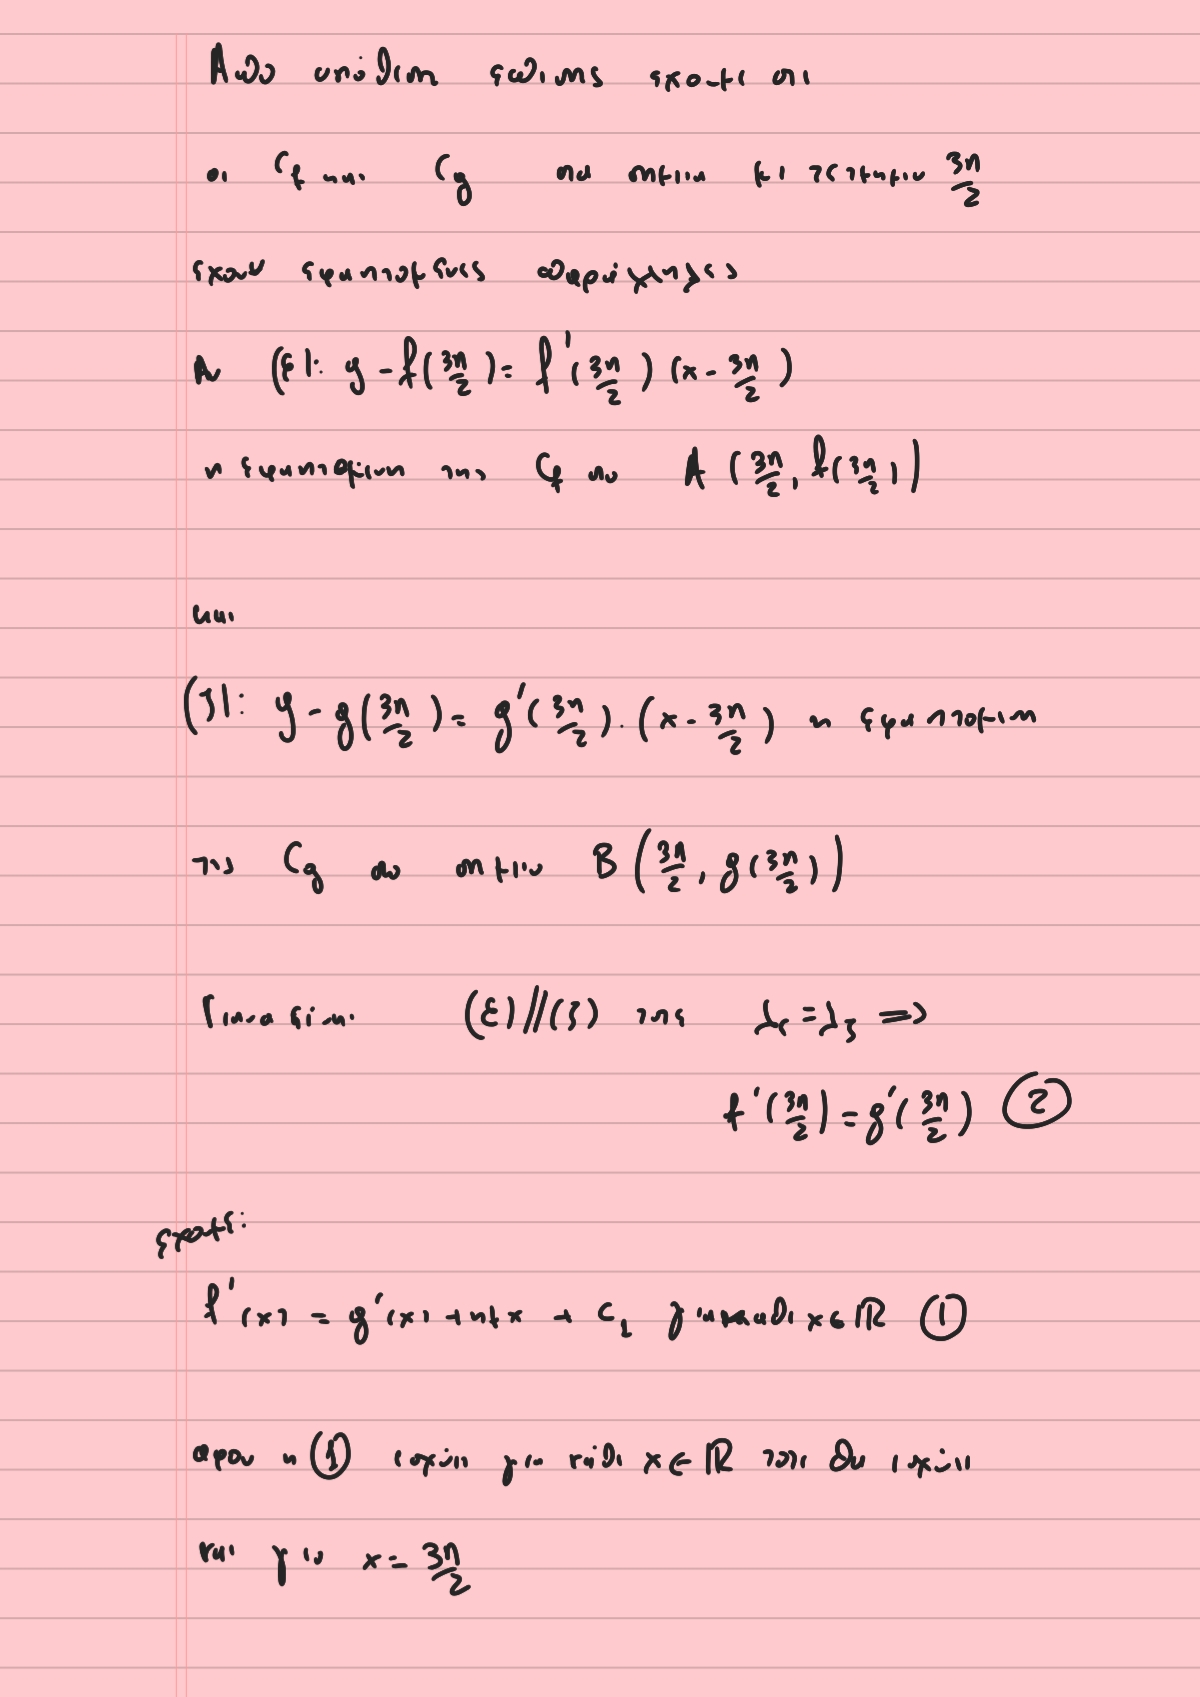 Από υπόθεση επίσης έχουμε ότι
οι Cf και Cg στα σημεία με τετμημένη 3π/2
έχουν εφαπτομένες παράλληλες
Αν (ε): y - f(3π/2) = f'(3π/2) (x - 3π/2)
η εφαπτομένη της Cf στο A (3π/2, f(3π/2))
και
(ζ): y - g(3π/2) = g'(3π/2) · (x - 3π/2) η εφαπτομένη
της Cg στο σημείο B (3π/2, g(3π/2))
(ε) // (ζ) τότε λε = λζ ⇒
f'(3π/2) = g'(3π/2) ②
έχουμε:
f'(x) = g'(x) + ημx + c₁ για κάθε x ∈ ℝ ①
αφού η ① ισχύει για κάθε x ∈ ℝ τότε θα ισχύει
και για x = 3π/2